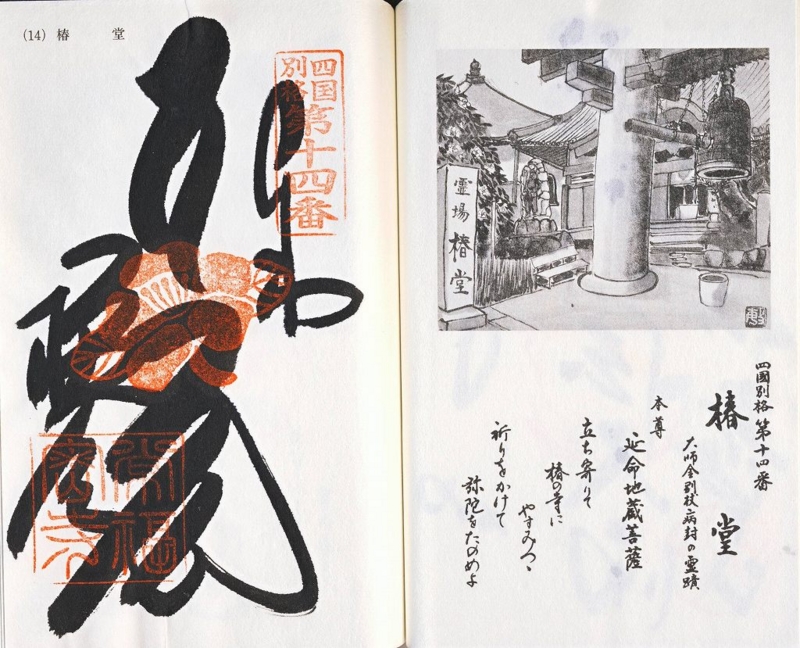 (14) 椿 堂
四国
別格
第十四番
霊場 椿堂
四國別格第十四番
椿 堂
大師金剛杖病封の霊蹟
本尊
延命地蔵菩薩
立ち寄りて
椿の寺に
やすみつゝ
祈りをかけて
弥陀をたのめよ